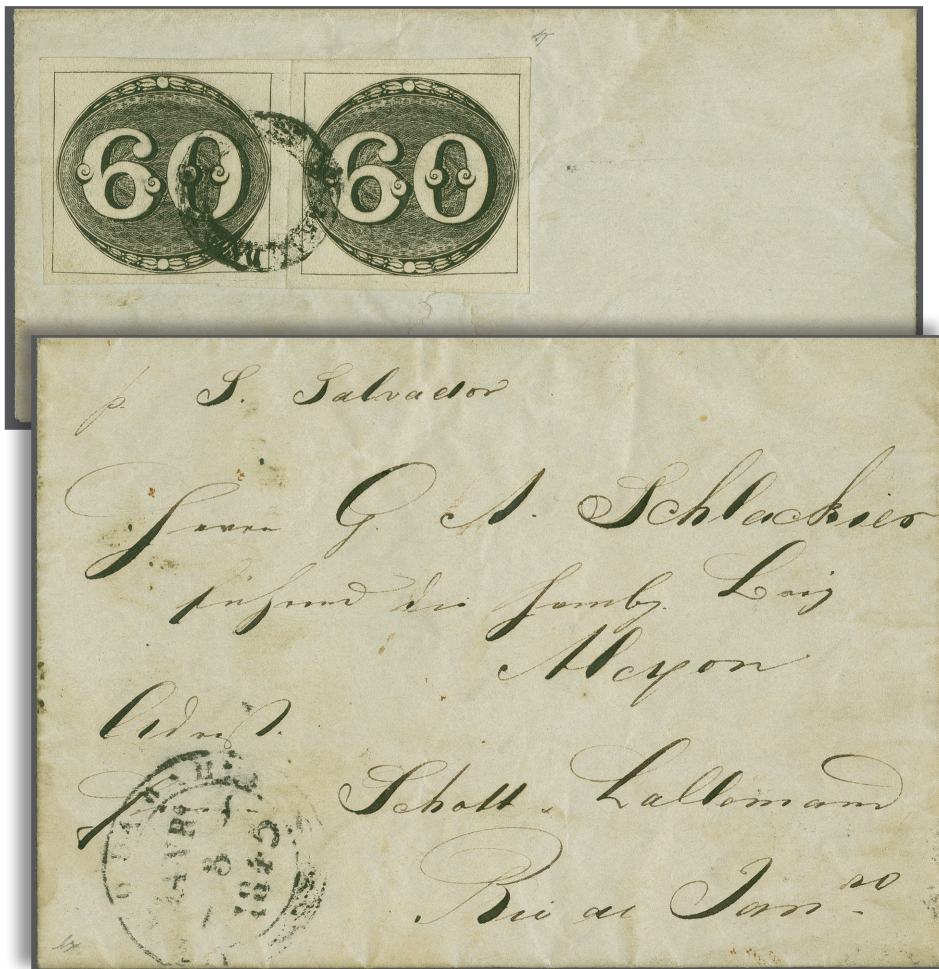 60 60
p. S. Salvador
Herrn G. A. Schlackier
führend die Hambg. Brig
Alcyon
Adrss.
Herren Schott & Lallemand
Rio de Janro
1845